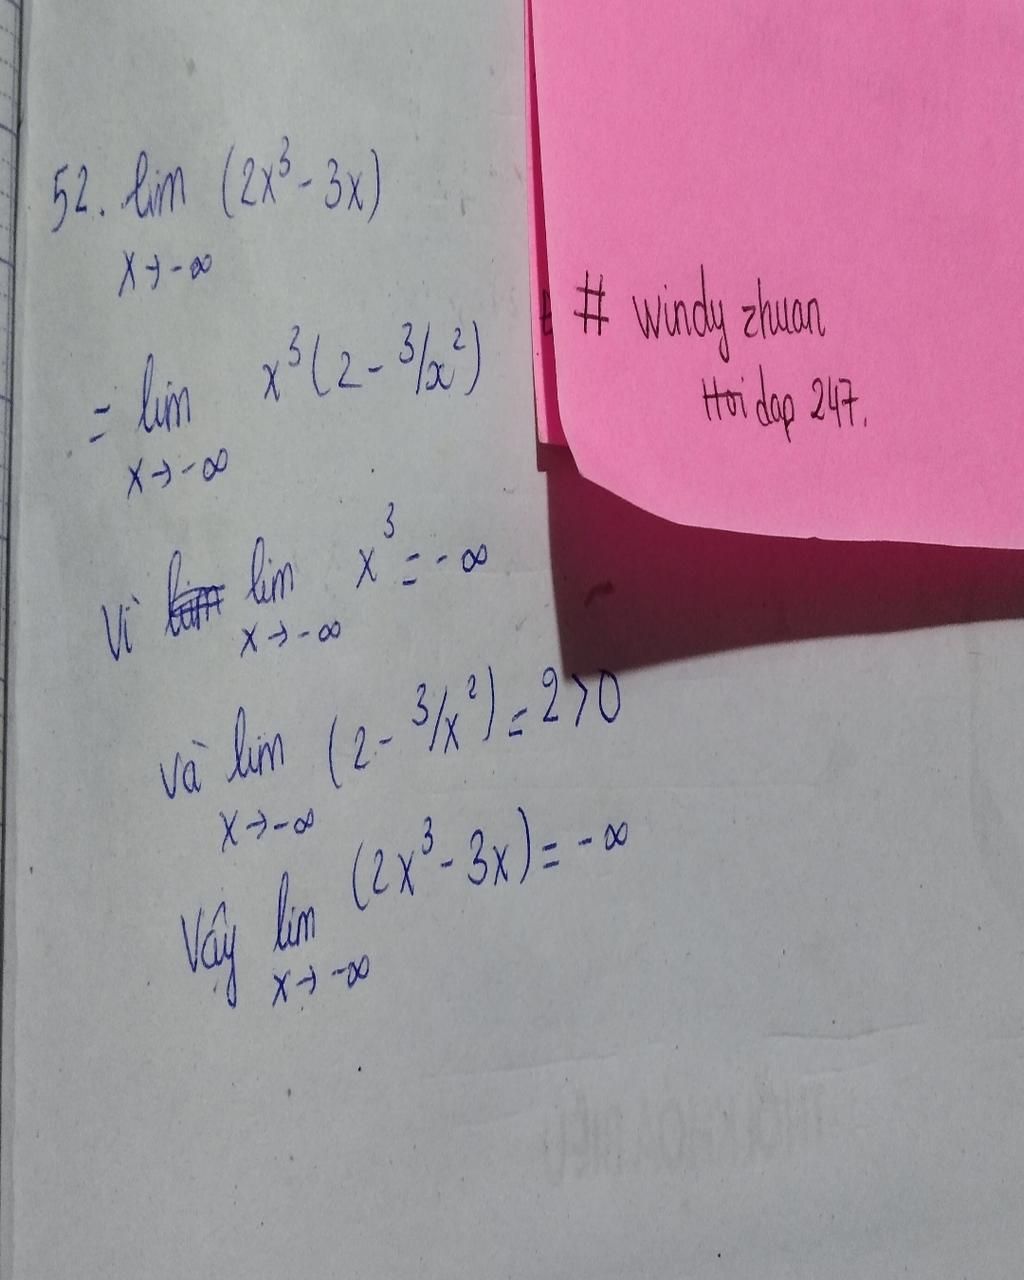 52. lim (2x³ - 3x)
x → -∞
= lim x³(2 - 3/x²)
x → -∞
Vì lim x³ = -∞
x → -∞
và lim (2 - 3/x²) = 2 > 0
x → -∞
Vậy lim (2x³ - 3x) = -∞
x → -∞
# windy zhuan
Hoidap 247.